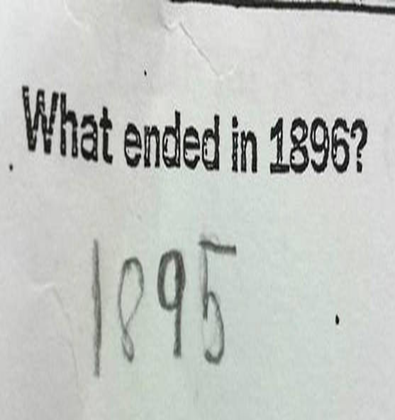 What ended in 1896?
1895